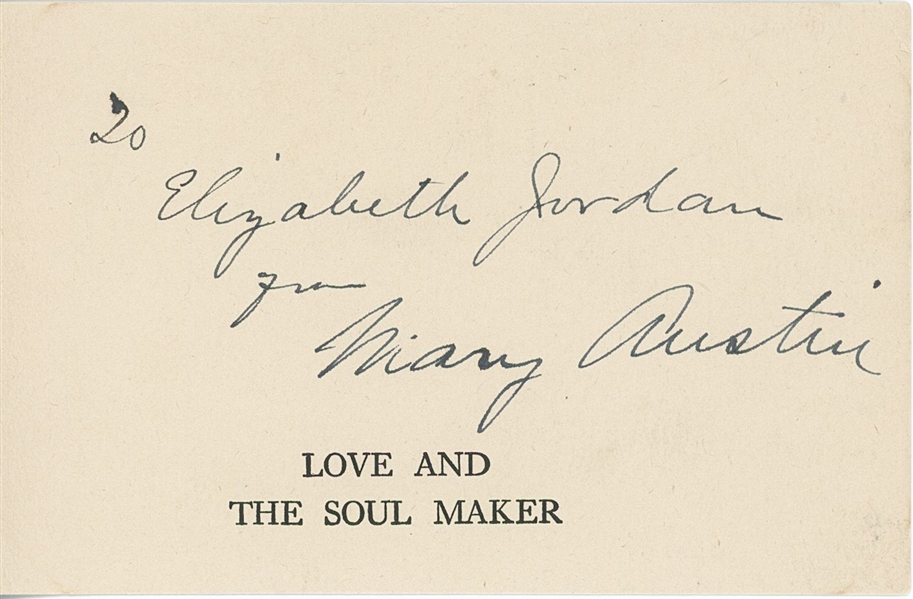 To
Elizabeth Jordan
from
Mary Austin
LOVE AND
THE SOUL MAKER